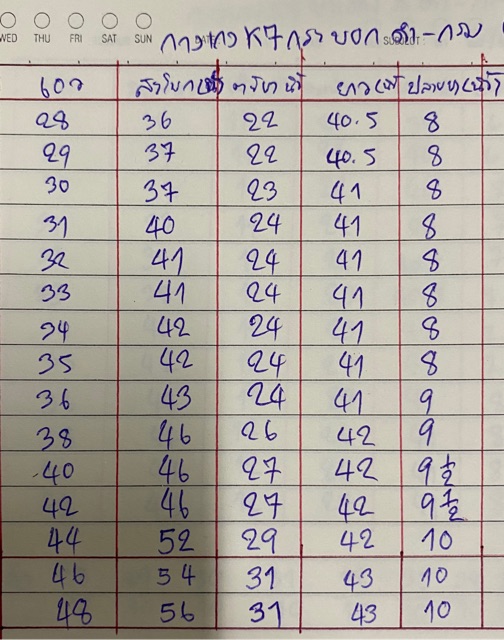 WED THU FRI SAT SUN
กางเกง K7 กระบอก ดำ-กรม
เอว สะโพก(นิ้ว) ต้นขา นิ้ว ยาว(นิ้ว) ปลายขา(นิ้ว)
28 36 22 40.5 8
29 37 22 40.5 8
30 37 23 41 8
31 40 24 41 8
32 41 24 41 8
33 41 24 41 8
34 42 24 41 8
35 42 24 41 8
36 43 24 41 9
38 46 26 42 9
40 46 27 42 9 1/2
42 46 27 42 9 1/2
44 52 29 42 10
46 54 31 43 10
48 56 31 43 10